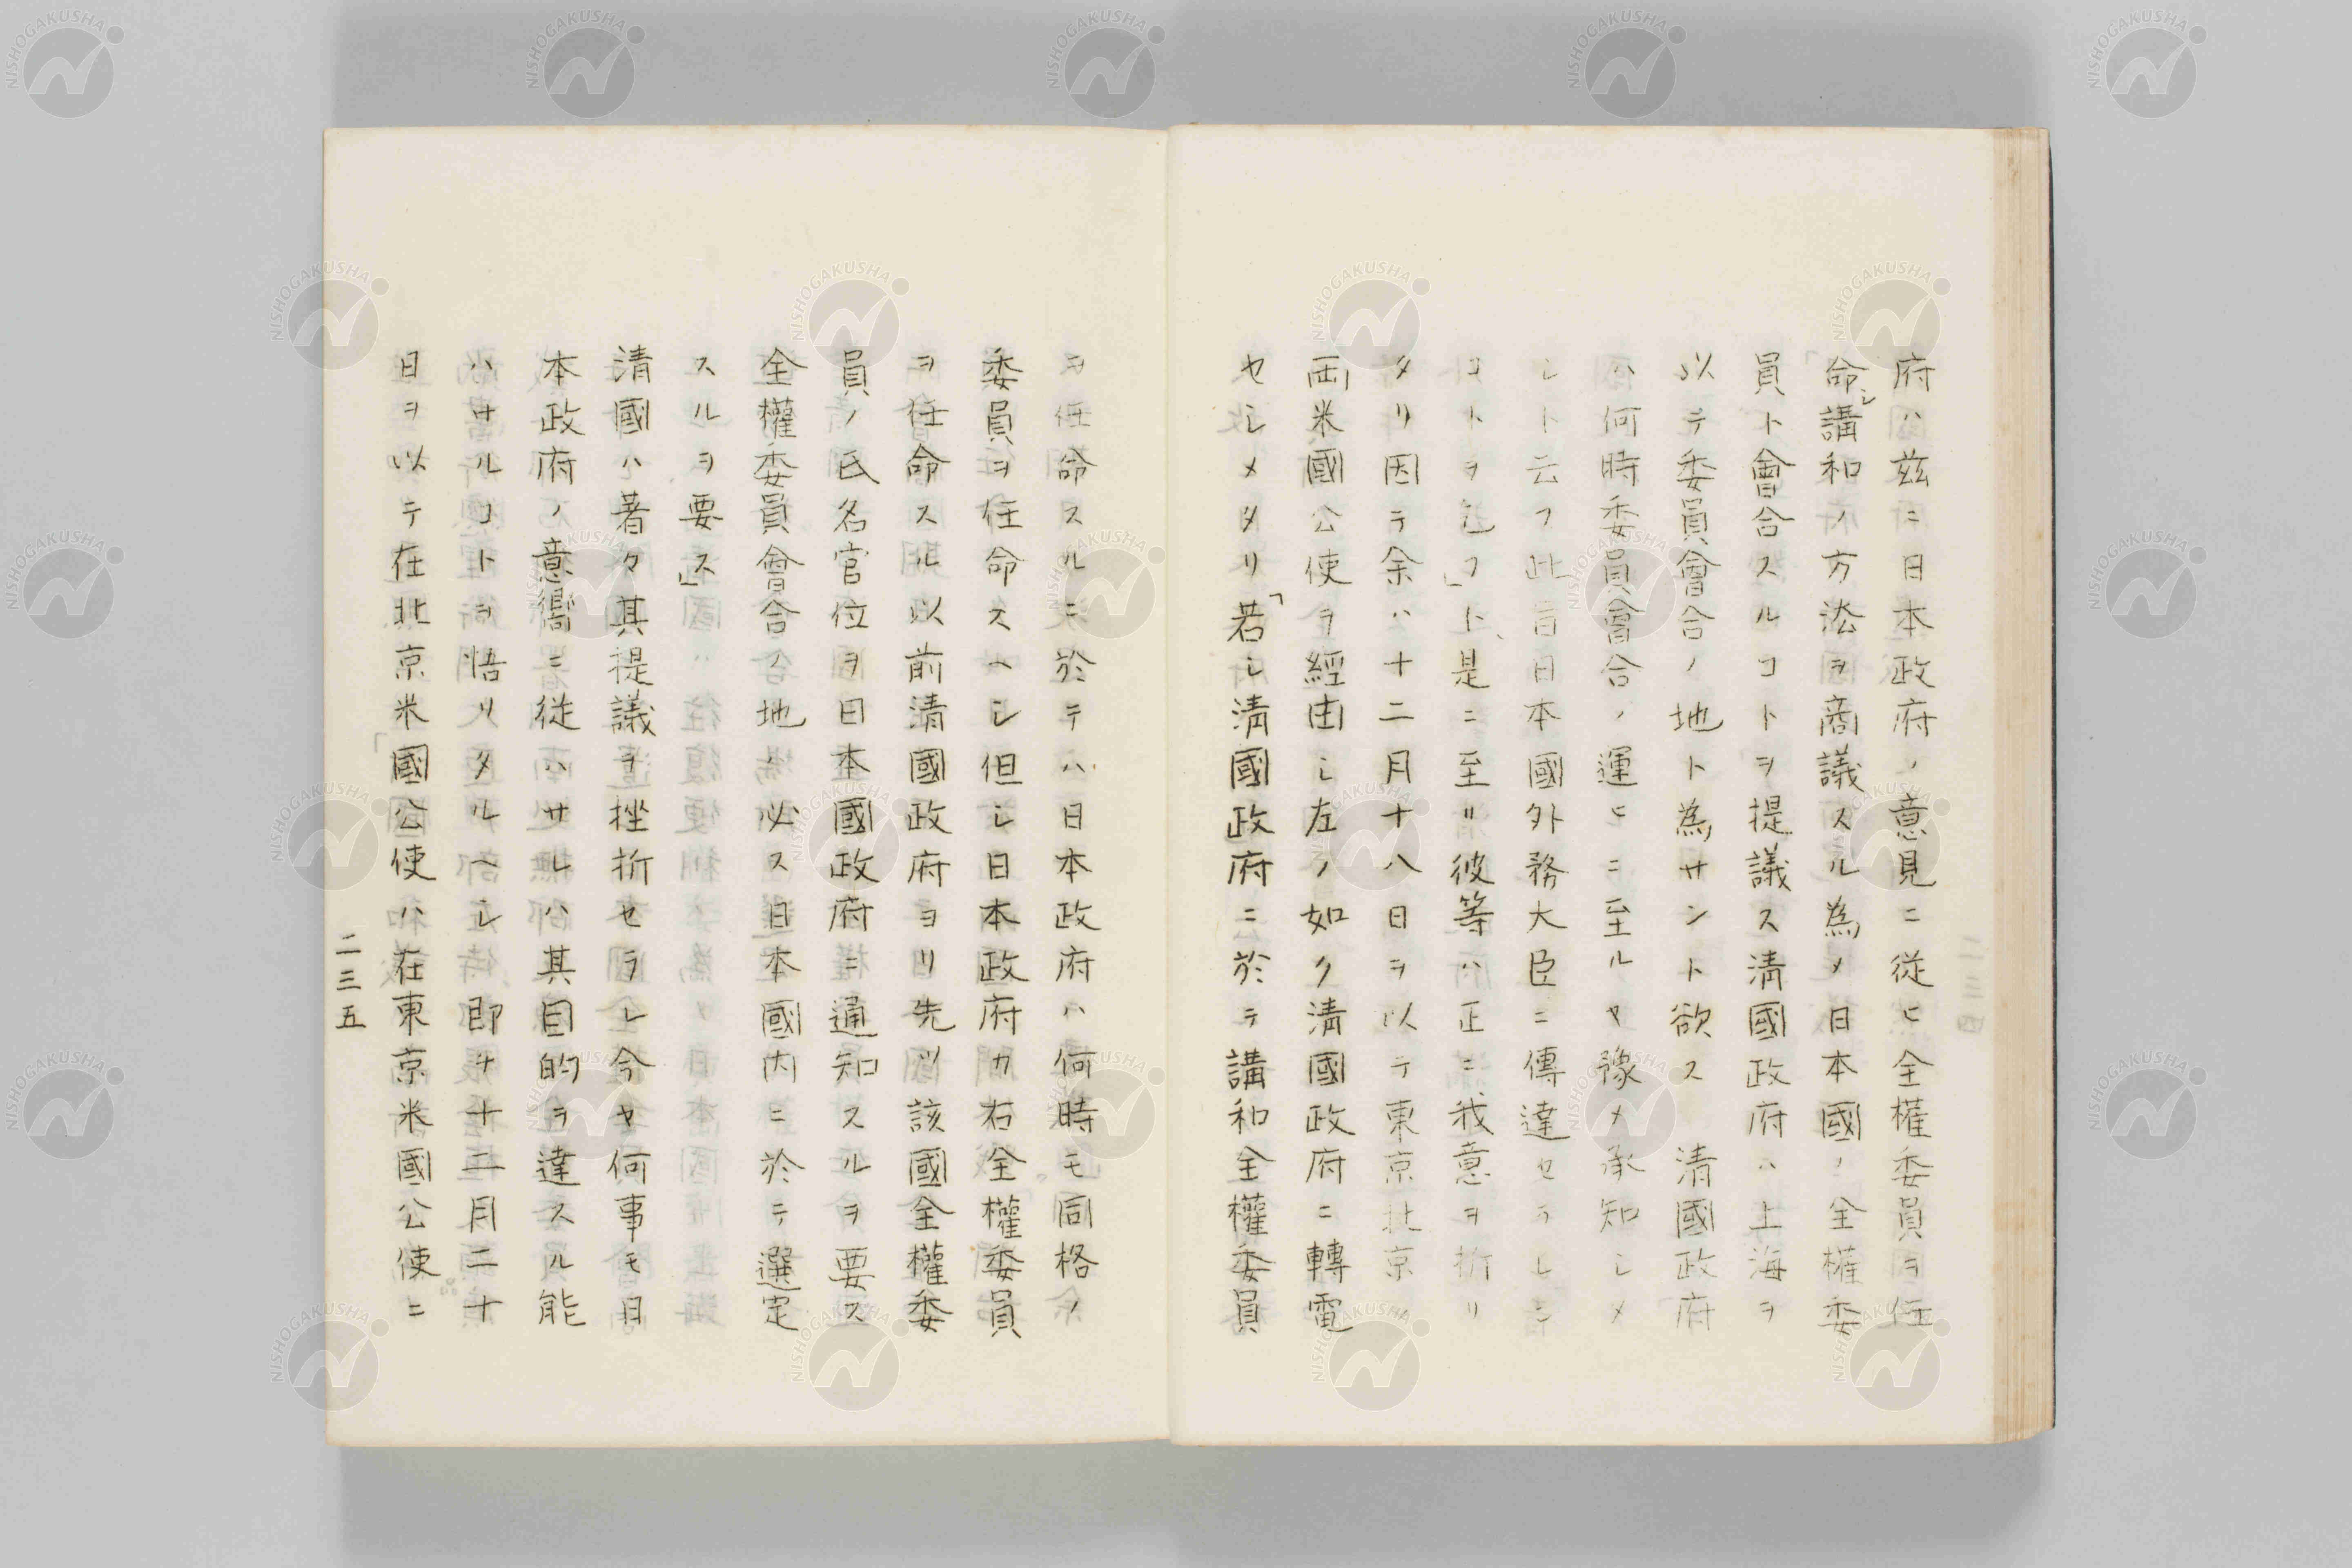 府ハ玆ニ日本政府ノ意見ニ從ヒ全權委員ヲ任
命シ講和ノ方法ヲ商議スル為メ日本國ノ全權委
員ト會合スルコトヲ提議ス清國政府ハ上海ヲ
以テ委員會合ノ地ト為サント欲ス 清國政府
ハ何時委員會合ノ運ヒニ至ルヤ豫メ承知シメ
シト云フ此旨日本國外務大臣ニ傳達セラレン
コトヲ乞フ」ト、是ニ至リ彼等ハ正ニ我意ヲ折リ
タリ因テ余ハ十二月十八日ヲ以テ東京北京ノ
両米國公使ヲ經由シ左ノ如ク清國政府ニ轉電
セシメタリ「若シ清國政府ニ於テ講和全權委員
ヲ任命スルニ於テハ日本政府ハ何時モ同格ノ
委員ヲ任命スヘシ但シ日本政府カ右全權委員
ヲ任命スル以前清國政府ヨリ先ツ該國全權委
員ノ氏名官位ヲ日本國政府ニ通知スルヲ要ス
全權委員會合ノ地ハ必ス日本國内ニ於テ選定
スルヲ要ス」
清國ハ著々其提議ヲ挫折セラレ今ヤ何事モ日
本政府ノ意嚮ニ從ハサレハ其目的ヲ達スル能
ハサルコトヲ悟リタルヘシ即チ十二月二十
日ヲ以テ在北京米國公使ハ在東京米國公使ニ
二三五
NISHOGAKUSHA